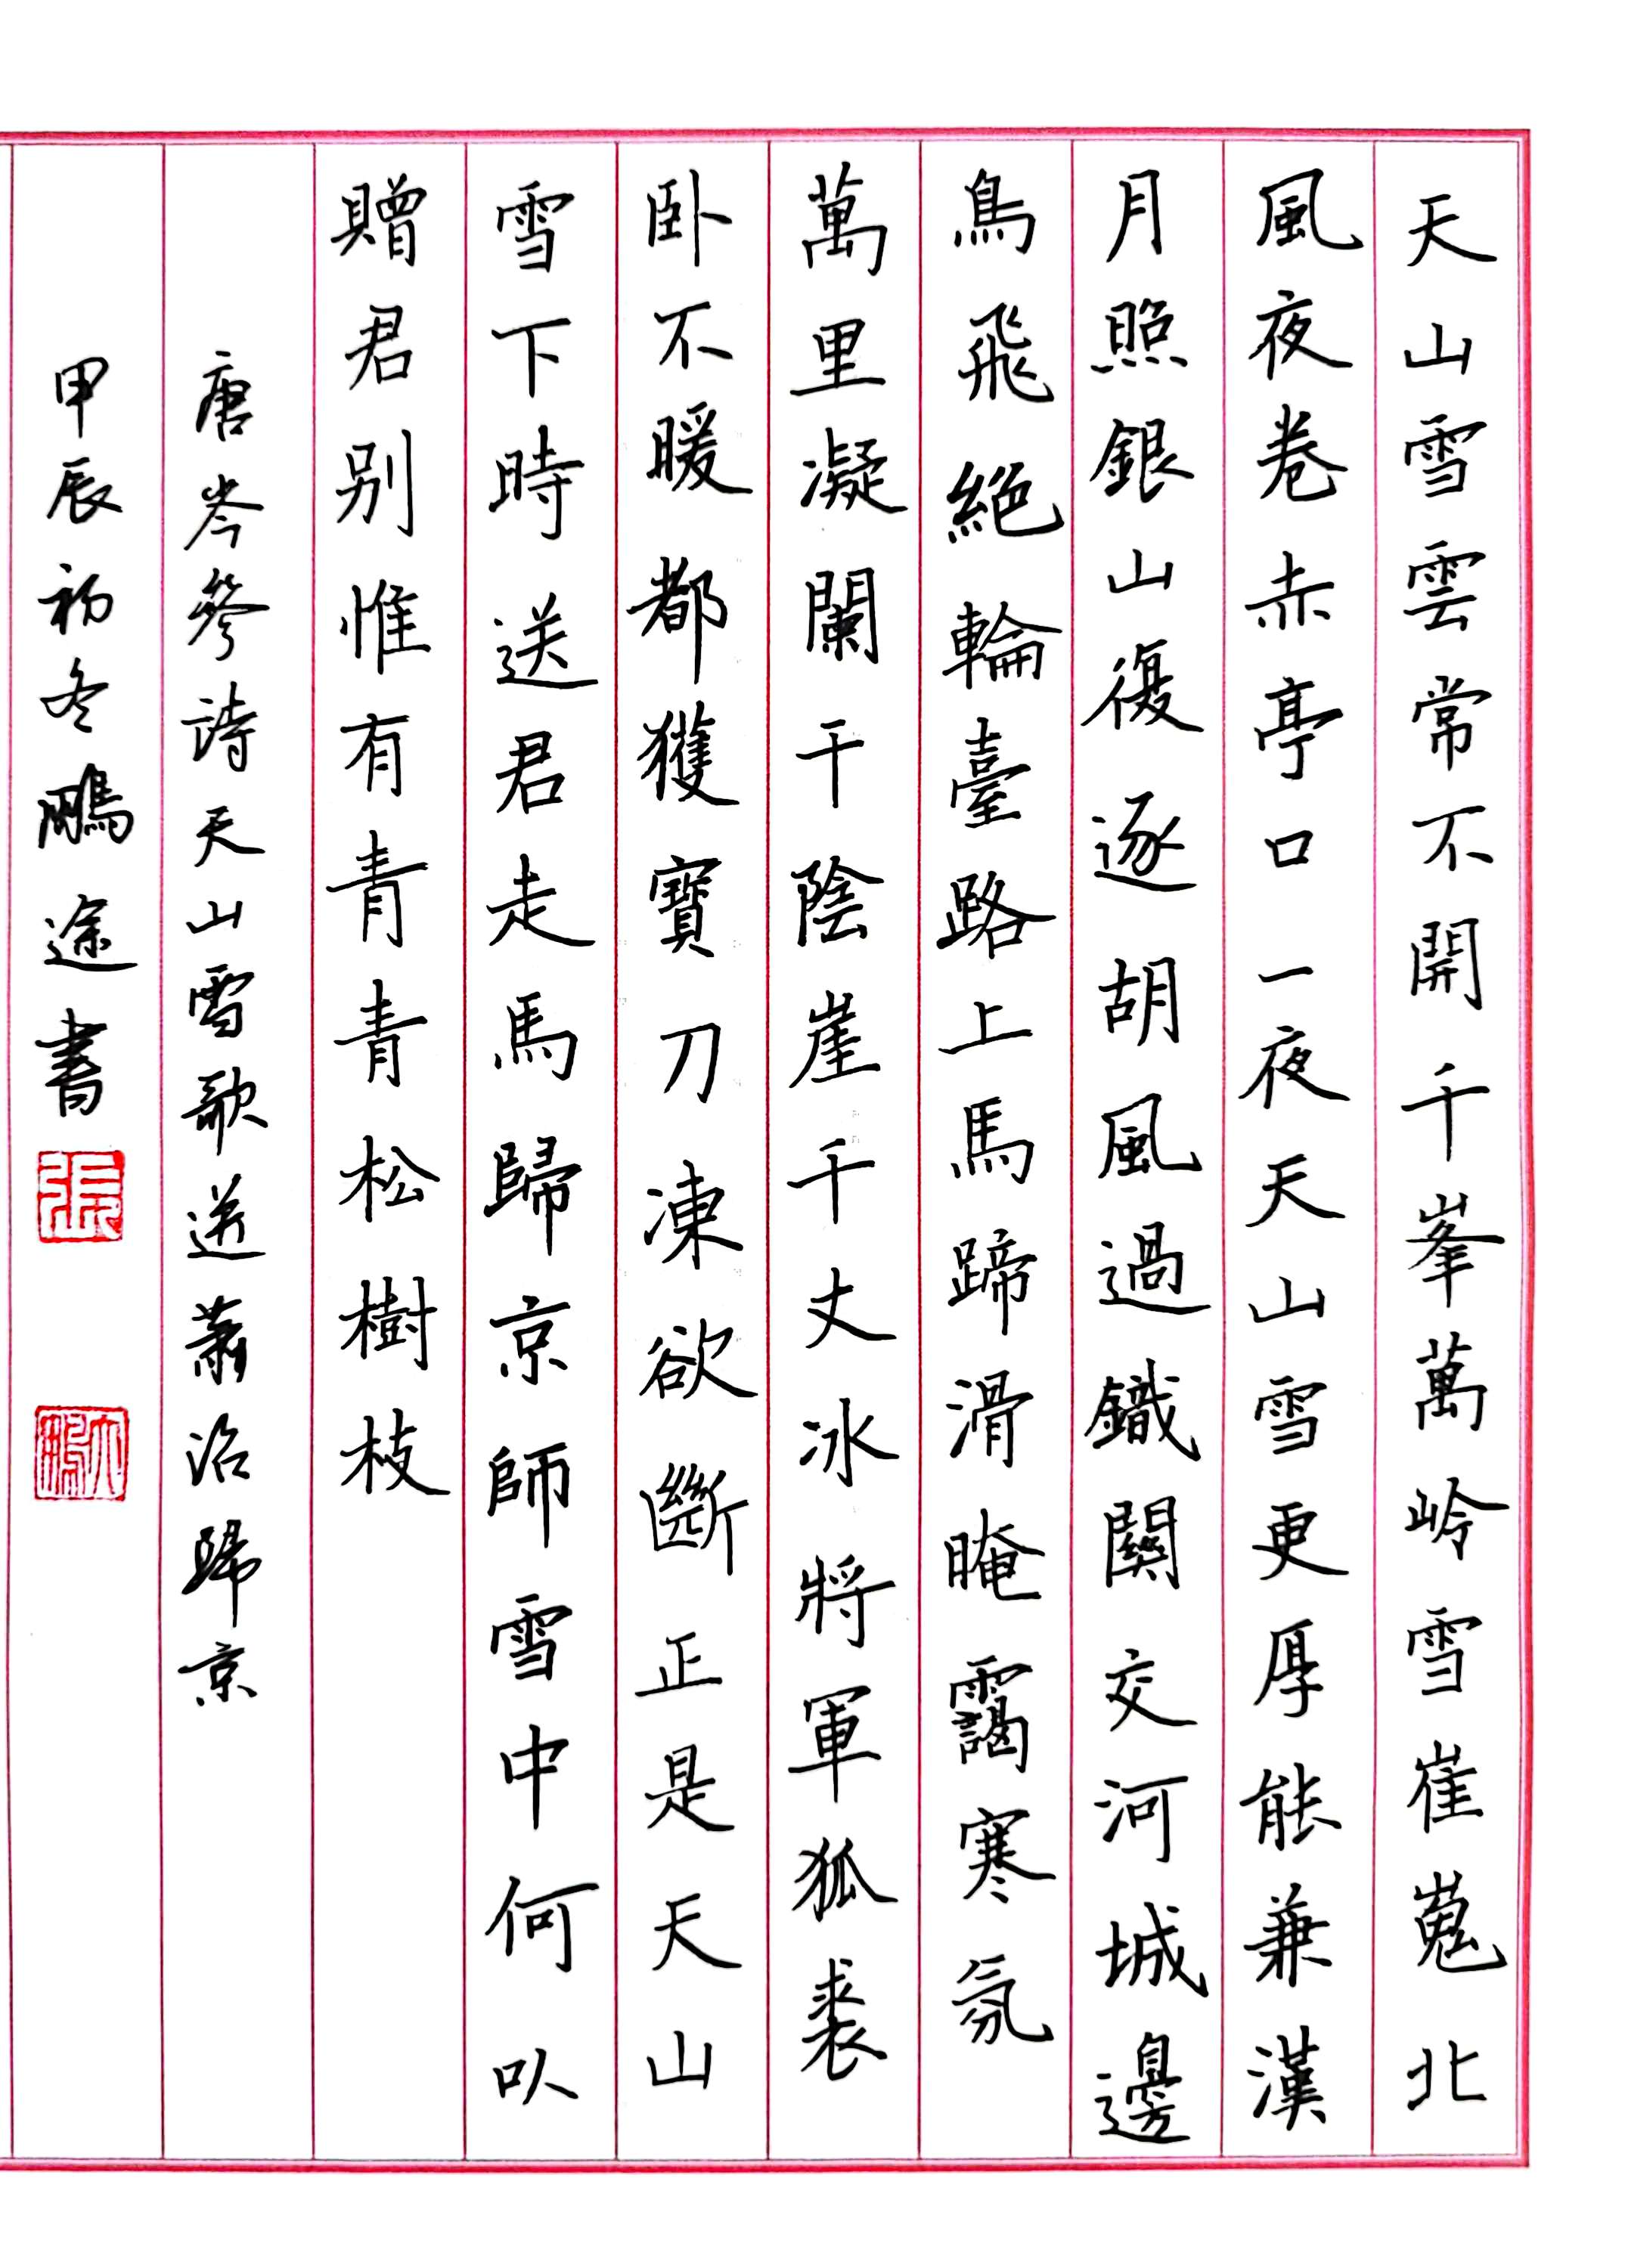 天山雪雲常不開千峯萬岭雪崔嵬北
風夜卷赤亭口一夜天山雪更厚能兼漢
月照銀山復逐胡風過鐵關交河城邊
鳥飛絕輪臺路上馬蹄滑晻靄寒氛
萬里凝闌干陰崖千丈冰將軍狐裘
卧不暖都獲寶刀凍欲斷正是天山
雪下時送君走馬歸京師雪中何以
贈君别惟有青青松樹枝
唐岑參詩天山雪歌送蕭治歸京
甲辰初冬鵬途書
張